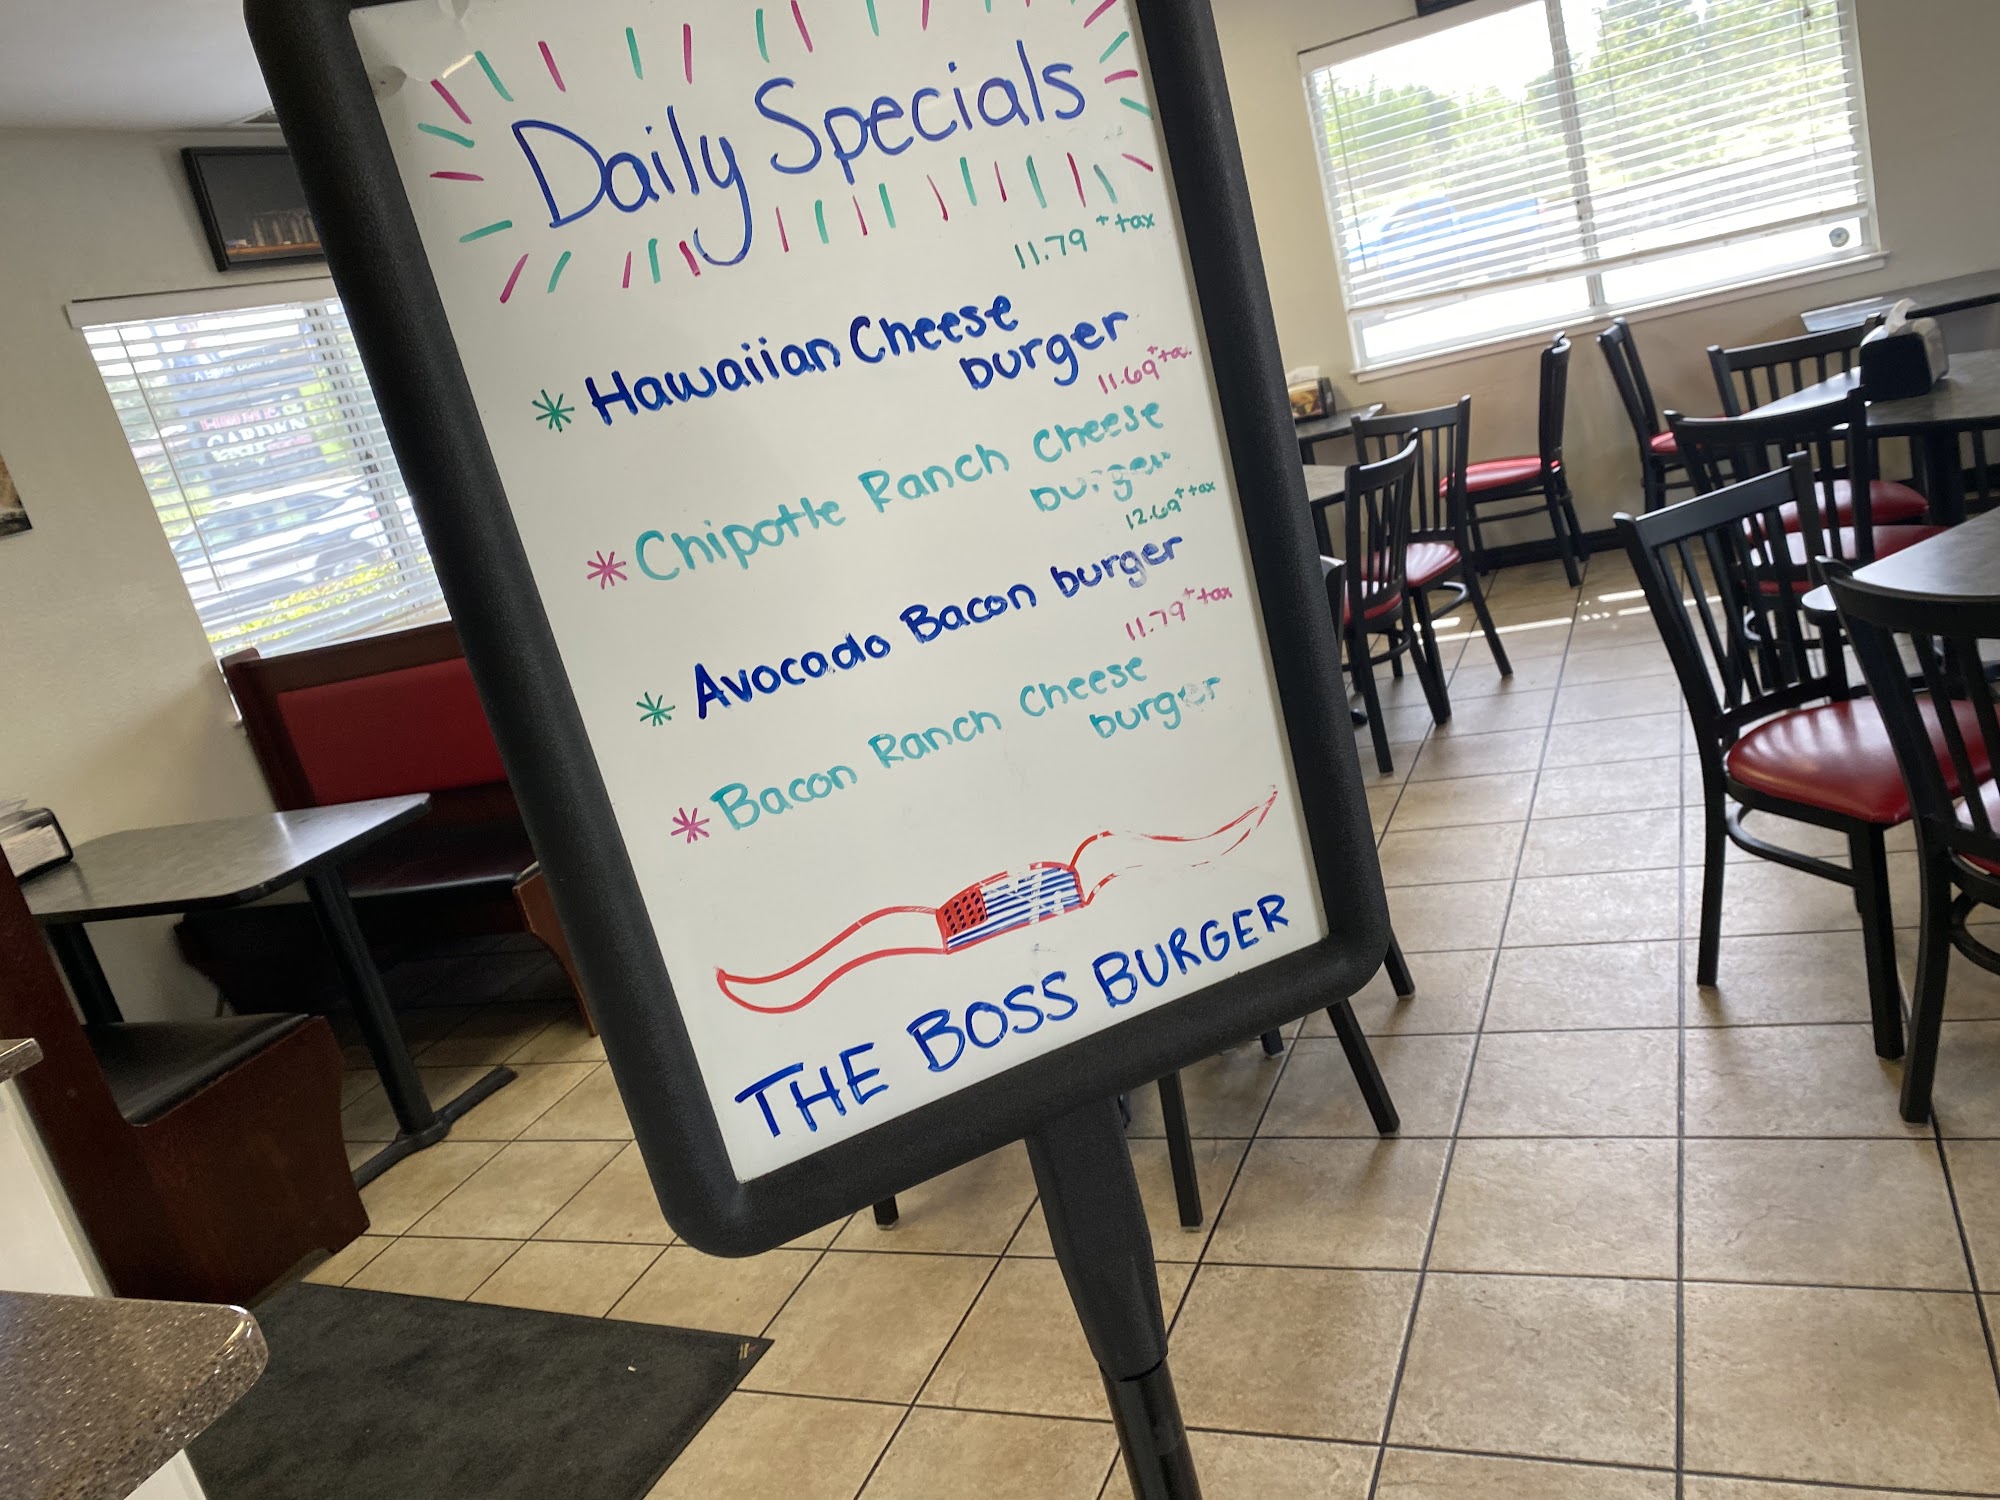 Daily Specials
11.79 + tax
* Hawaiian Cheese
burger
11.69 + tax
* Chipotle Ranch Cheese
burger
12.69 + tax
* Avocado Bacon burger
11.79 + tax
* Bacon Ranch Cheese
burger
THE BOSS BURGER
GARDEN